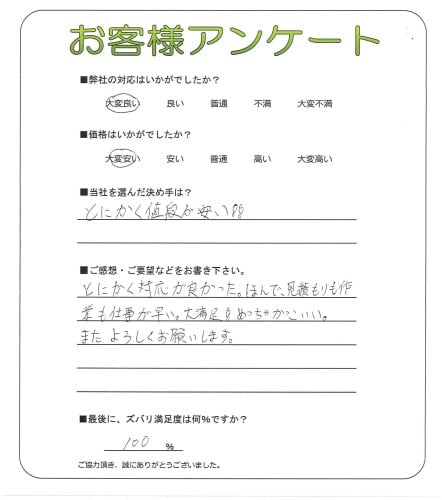 お客様アンケート
■弊社の対応はいかがでしたか？
大変良い 良い 普通 不満 大変不満
■価格はいかがでしたか？
大変安い 安い 普通 高い 大変高い
■当社を選んだ決め手は？
とにかく値段が安い!!
■ご感想・ご要望などをお書き下さい。
とにかく対応が良かった。ほんで、見積もりも作
業も仕事が早い。大満足!!めっちゃかっこいい。
またよろしくお願いします。
■最後に、ズバリ満足度は何%ですか？
100 %
ご協力頂き、誠にありがとうございました。